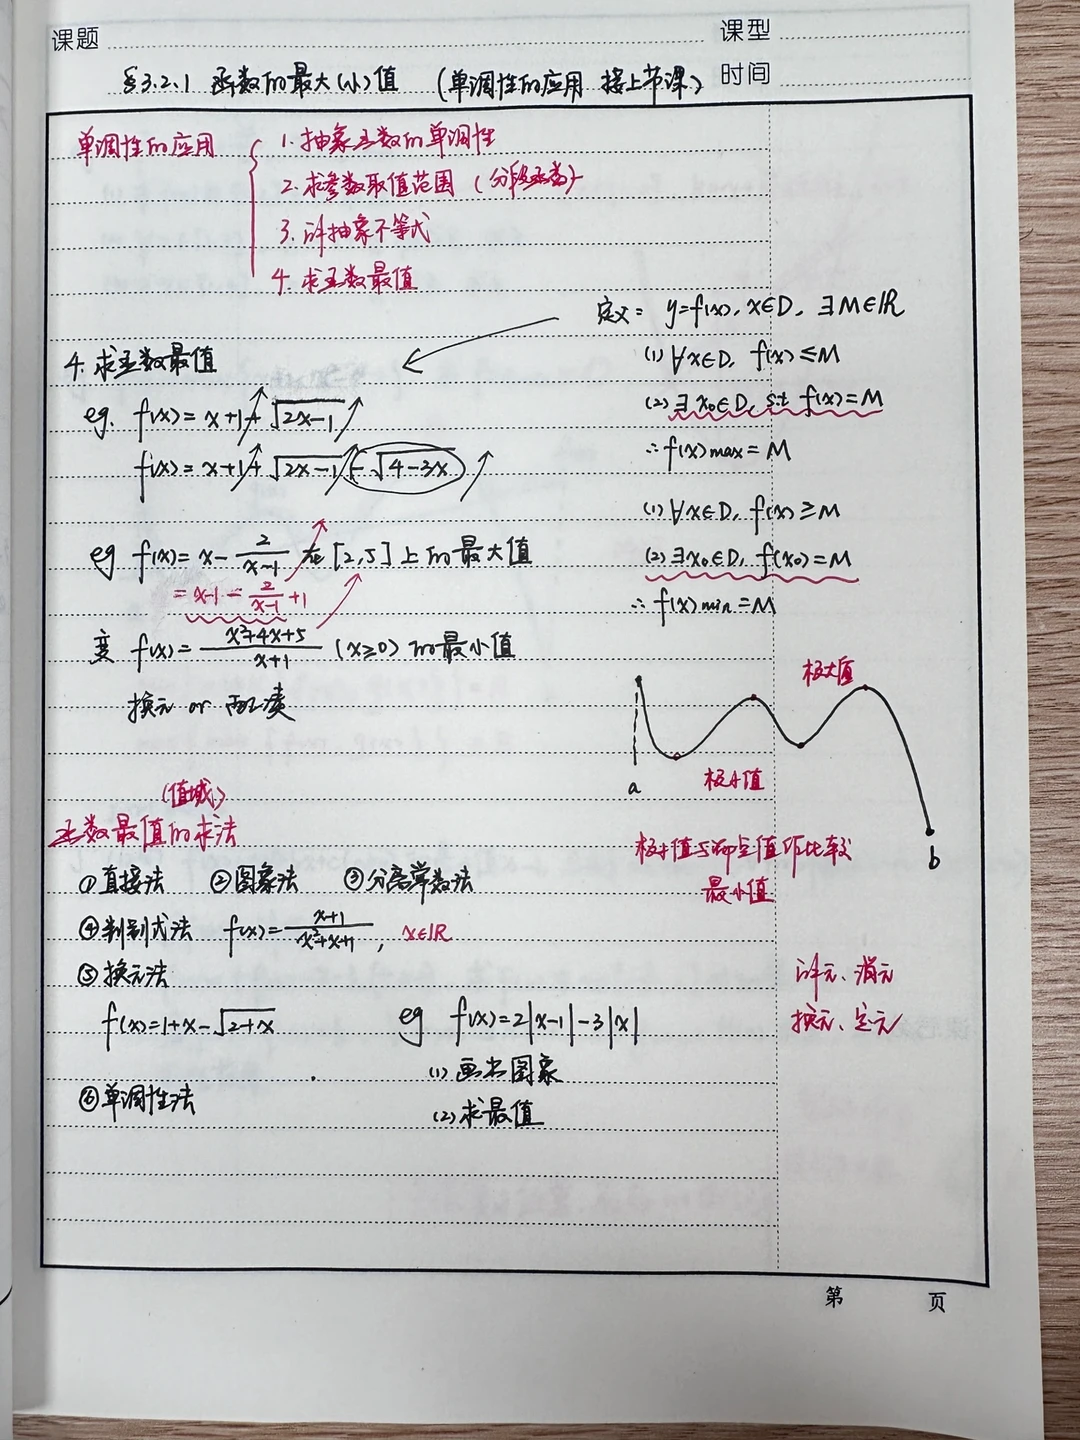 课题
课型
§3.2.1 函数的最大(小)值 (单调性的应用 接上节课)
时间
单调性的应用
1.抽象函数的单调性
2.求参数取值范围(分段函数)
3.解抽象不等式
4.求函数最值
定义: y=f(x), x∈D, ∃M∈R
(1) ∀x∈D, f(x)≤M
(2) ∃x₀∈D, s.t f(x)=M
∴f(x)max=M
(1) ∀x∈D, f(x)≥M
(2) ∃x₀∈D, f(x₀)=M
∴f(x)min=M
4.求函数最值
eg. f(x)=x+1+√(2x-1)
f(x)=x+1+√(2x-1)-√(4-3x)
eg f(x)=x-2/(x-1) 在[2,5]上的最大值
=x-1-2/(x-1)+1
变 f(x)=(x²+4x+5)/(x+1) (x≥0)的最小值
换元 or 配凑
极大值
极小值
a
b
极小值与端点值作比较
最小值
(值域)
函数最值的求法
①直接法 ②图象法 ③分离常数法
④判别式法 f(x)=(x+1)/(x²+x+1), x∈R
⑤换元法
f(x)=1+x-√(2+x)
eg f(x)=2|x-1|-3|x|
(1)画出图象
(2)求最值
⑥单调性法
设元、消元
换元、定元
第 页